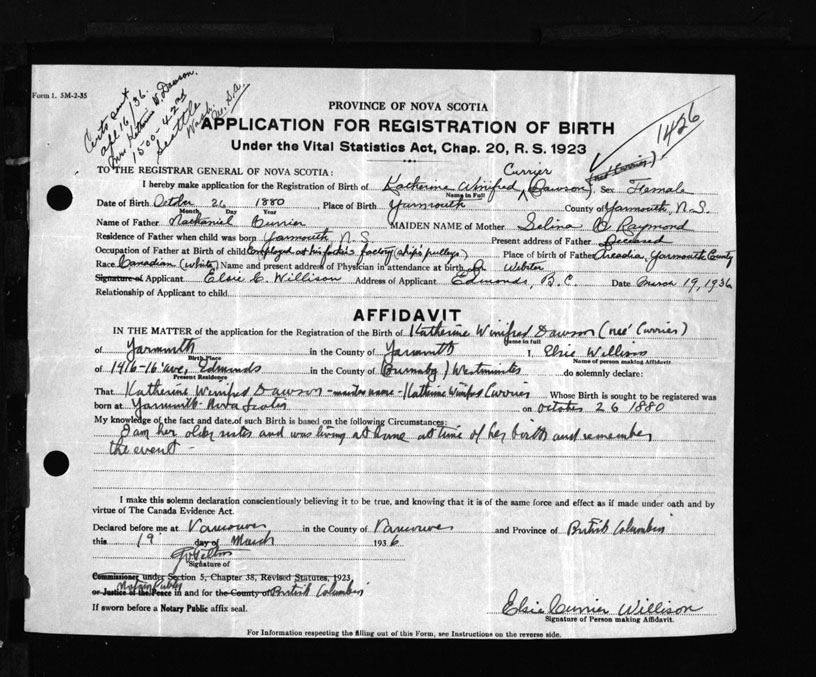 Form 1. 5M-2-35
Certs sent
apl 16/36.
Mrs Katherine W. Dawson.
1500-42nd
Seattle
Wash.
U.S.A.
1426
PROVINCE OF NOVA SCOTIA
APPLICATION FOR REGISTRATION OF BIRTH
Under the Vital Statistics Act, Chap. 20, R. S. 1923
TO THE REGISTRAR GENERAL OF NOVA SCOTIA: Currier (nee Currier)
I hereby make application for the Registration of Birth of Katherine Winifred (Dawson) Sex Female
Name in Full
Date of Birth October 26 1880 Place of Birth Yarmouth County of Yarmouth, N.S.
Month Day Year
Name of Father Nathaniel Currier MAIDEN NAME of Mother Selina Raymond
Residence of Father when child was born Yarmouth N.S. Present address of Father Deceased
Occupation of Father at Birth of child Employed at his father's factory (ship's pulleys) Place of birth of Father Arcadia, Yarmouth County
Race Canadian (White) Name and present address of Physician in attendance at birth Dr Webster
Signature of Applicant Elsie C. Willison Address of Applicant Edmonds, B.C. Date March 19, 1936
Relationship of Applicant to child
AFFIDAVIT
IN THE MATTER of the application for the Registration of the Birth of Katherine Winifred Dawson (nee Currier)
Name in full
of Yarmouth in the County of Yarmouth I, Elsie Willison
Birth Place Name of person making Affidavit.
of 1416-16 ave, Edmonds in the County of (Burnaby) Westminster do solemnly declare:
Present Residence
That Katherine Winifred Dawson - maiden name - Katherine Winifred Currier Whose Birth is sought to be registered was
born at Yarmouth Nova Scotia on October 26 1880
My knowledge of the fact and date of such Birth is based on the following Circumstances:
I am her older sister and was living at home at time of her birth and remember
the event -
I make this solemn declaration conscientiously believing it to be true, and knowing that it is of the same force and effect as if made under oath and by
virtue of The Canada Evidence Act.
Declared before me at Vancouver in the County of Vancouver and Province of British Columbia
this 19 day of March 1936
Signature of
Commissioner under Section 5, Chapter 38, Revised Statutes, 1923,
Notary Public
or Justice of the Peace in and for the County of British Columbia
If sworn before a Notary Public affix seal.
Elsie Currier Willison
Signature of Person making Affidavit.
For Information respecting the filling out of this Form, see Instructions on the reverse side.